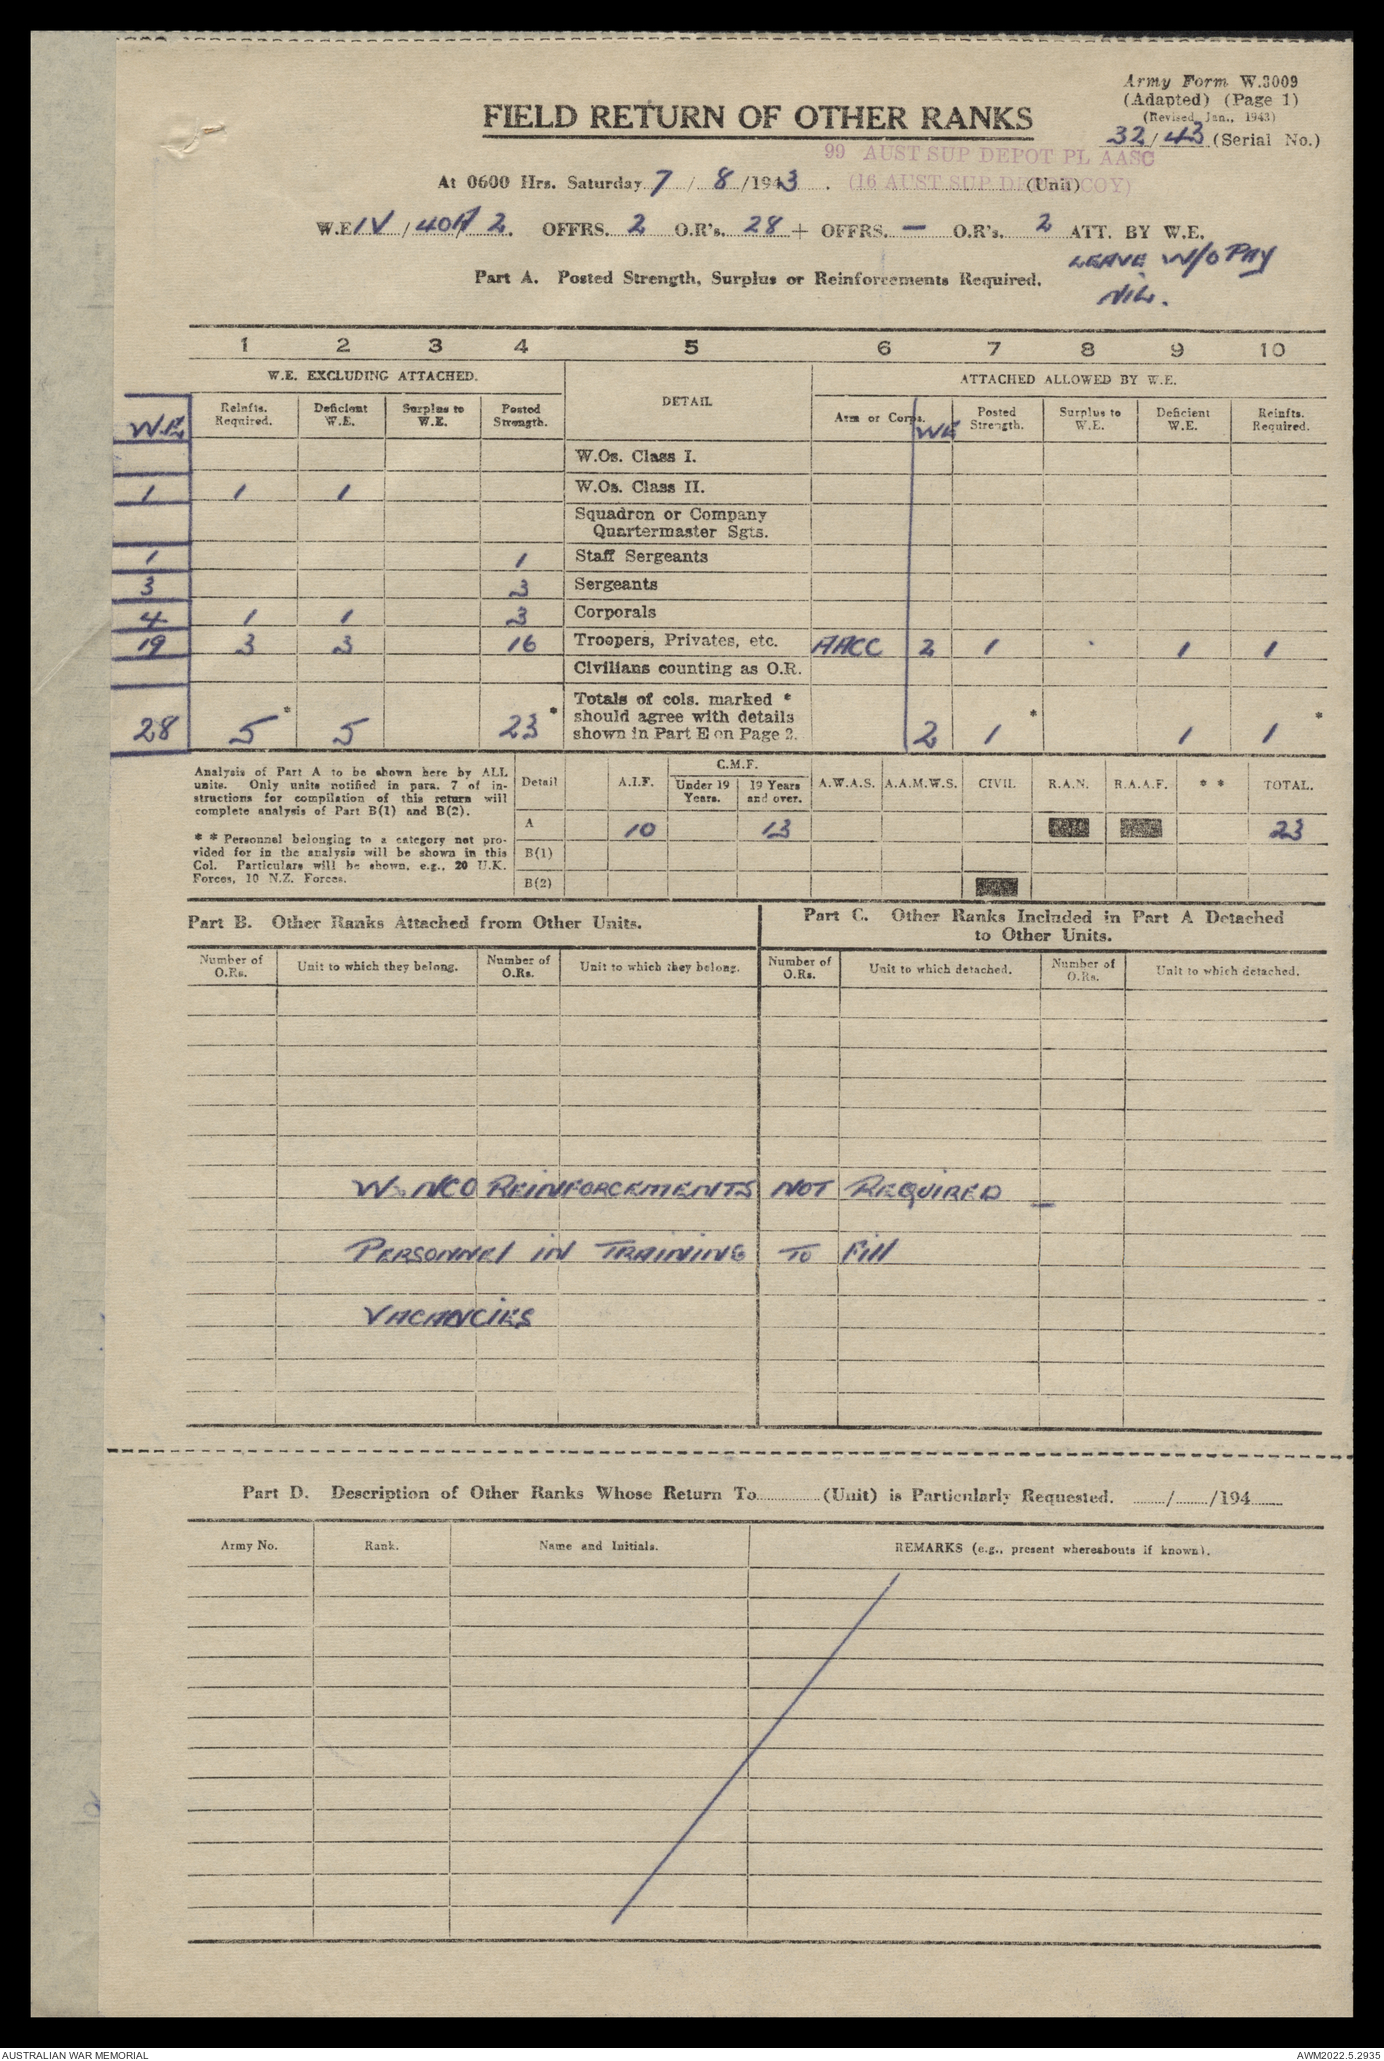 Army Form W.3009
(Adapted) (Page 1)
(Revised Jan., 1943)
FIELD RETURN OF OTHER RANKS
32/43 (Serial No.)
99 AUST SUP DEPOT PL AASC
At 0600 Hrs. Saturday 7 / 8 /1943 . (16 AUST SUP DEPOT COY) (Unit)
W.E. IV / 40A/ 2. OFFRS. 2 O.R's. 28 + OFFRS. — O.R's. 2 ATT. BY W.E.
LEAVE W/O PAY
NIL.
Part A. Posted Strength, Surplus or Reinforcements Required.
1 2 3 4 5 6 7 8 9 10
W.E. EXCLUDING ATTACHED. DETAIL ATTACHED ALLOWED BY W.E.
W.E. Reinfts. Required. Deficient W.E. Surplus to W.E. Posted Strength. Arm or Corps. WE Posted Strength. Surplus to W.E. Deficient W.E. Reinfts. Required.
W.Os. Class I.
1 1 1 W.Os. Class II.
Squadron or Company
Quartermaster Sgts.
1 1 Staff Sergeants
3 3 Sergeants
4 1 1 3 Corporals
19 3 3 16 Troopers, Privates, etc. AACC 2 1 1 1
Civilians counting as O.R.
Totals of cols. marked *
should agree with details
28 5* 5 23* shown in Part E on Page 2. 2 1* 1 1*
Analysis of Part A to be shown here by ALL
units. Only units notified in para. 7 of in-
structions for compilation of this return will
complete analysis of Part B(1) and B(2).
* * Personnel belonging to a category not pro-
vided for in the analysis will be shown in this
Col. Particulars will be shown, e.g., 20 U.K.
Forces, 10 N.Z. Forces.
C.M.F.
Detail A.I.F. Under 19 Years. 19 Years and over. A.W.A.S. A.A.M.W.S. CIVIL R.A.N. R.A.A.F. * * TOTAL.
A 10 13 23
B(1)
B(2)
Part B. Other Ranks Attached from Other Units.
Part C. Other Ranks Included in Part A Detached
to Other Units.
Number of O.Rs. Unit to which they belong. Number of O.Rs. Unit to which they belong. Number of O.Rs. Unit to which detached. Number of O.Rs. Unit to which detached.
W. NCO REINFORCEMENTS NOT REQUIRED —
PERSONNEL IN TRAINING TO FILL
VACANCIES
Part D. Description of Other Ranks Whose Return To............(Unit) is Particularly Requested. ......./......./194......
Army No. Rank. Name and Initials. REMARKS (e.g., present whereabouts if known).
AUSTRALIAN WAR MEMORIAL
AWM2022.5.2935